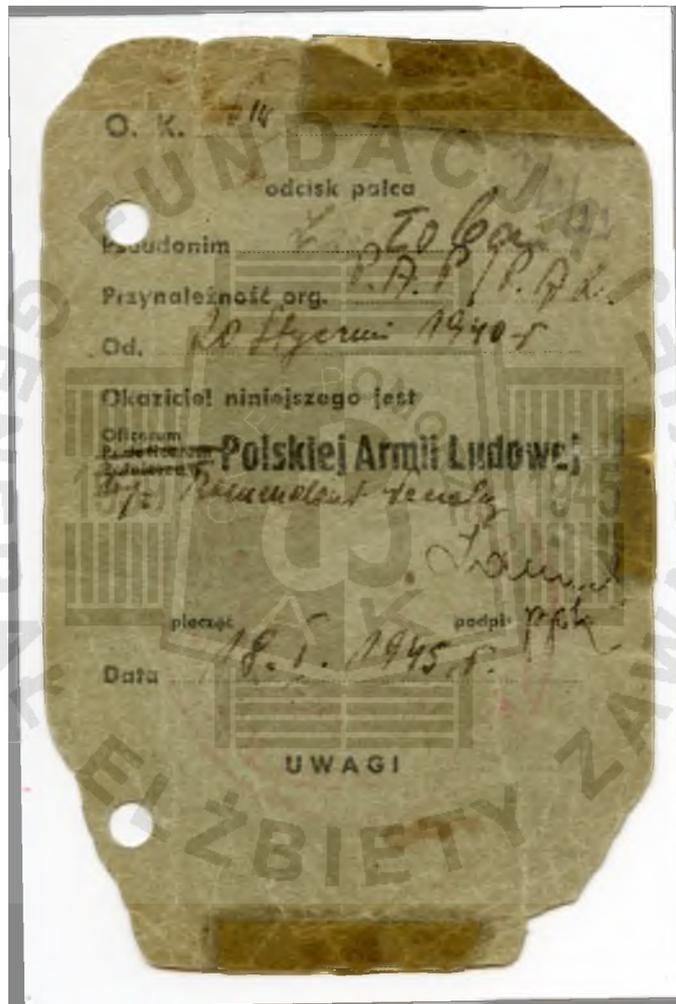 O. K.
odcisk palca
Pseudonim
Przynależność org. P.A.P / P.A.L.
Od. 20 Stycznia 1940 r
Okaziciel niniejszego jest
Oficerem
Podoficerem
Żołnierzem
Polskiej Armii Ludowej
Kommendant
pieczęć podpis ppłk
Data 18. I. 1945 r.
UWAGI
FUNDACJA GENERAŁ ELŻBIETY ZAWACKIEJ
1945
AK